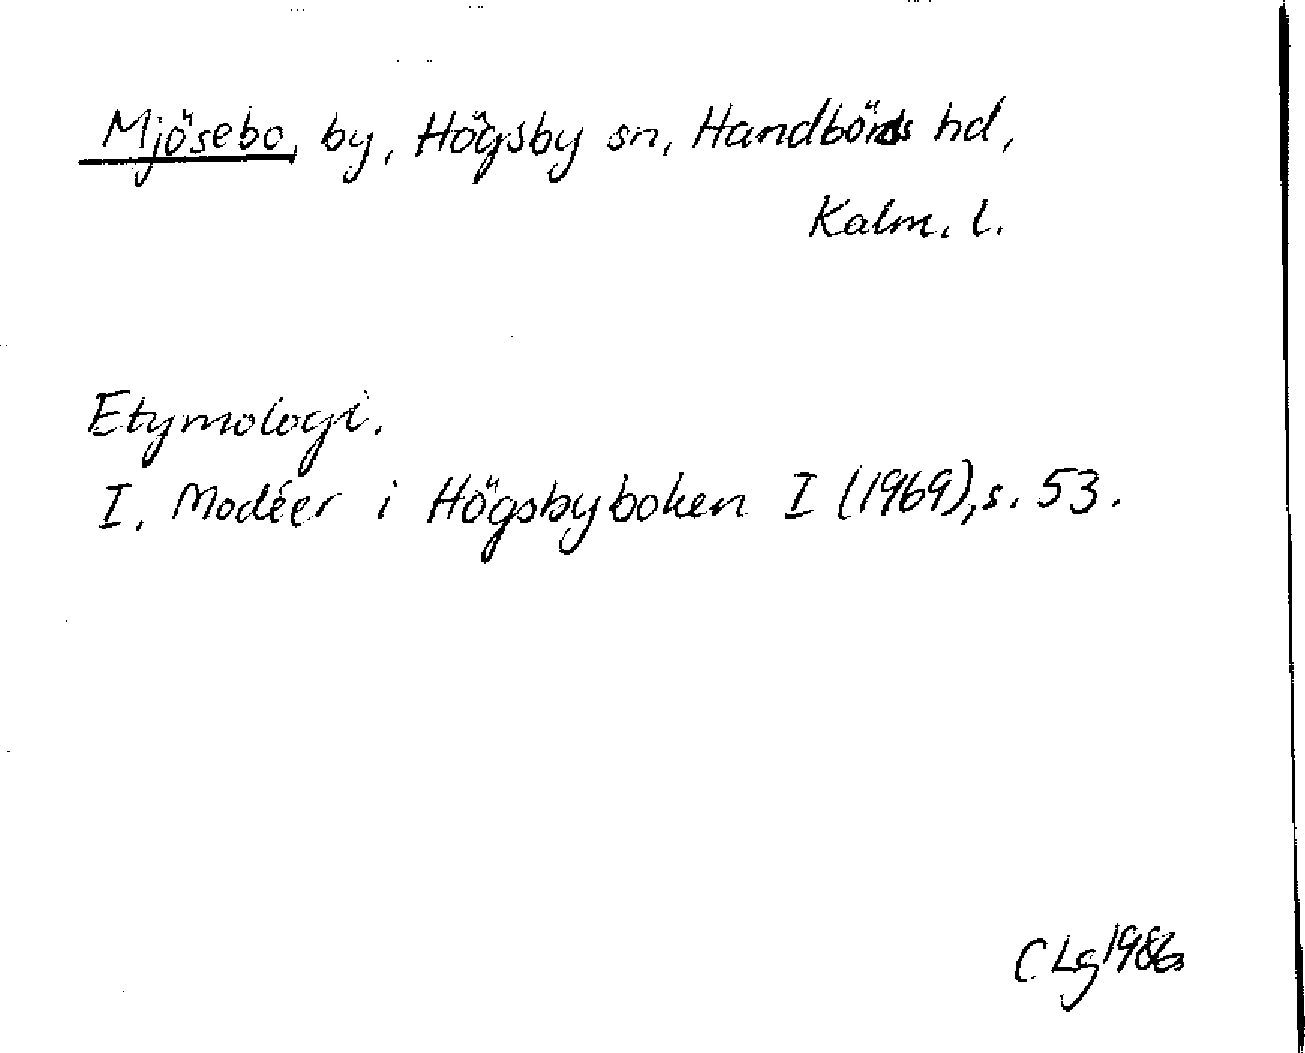 Mjösebo, by, Högsby sn, Handbörds hd,
Kalm. l.
Etymologi.
I. Modéer i Högsbyboken I (1969), s. 53.
CLg 1986